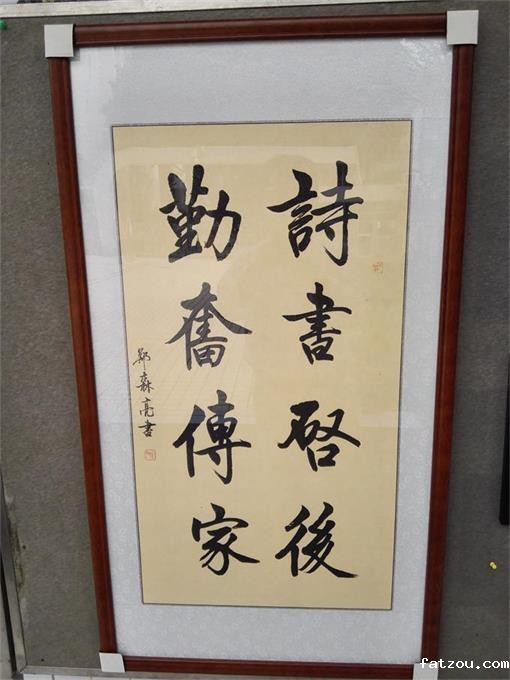 詩書啓後
勤奮傳家
鄭森亮書
fatzou.com